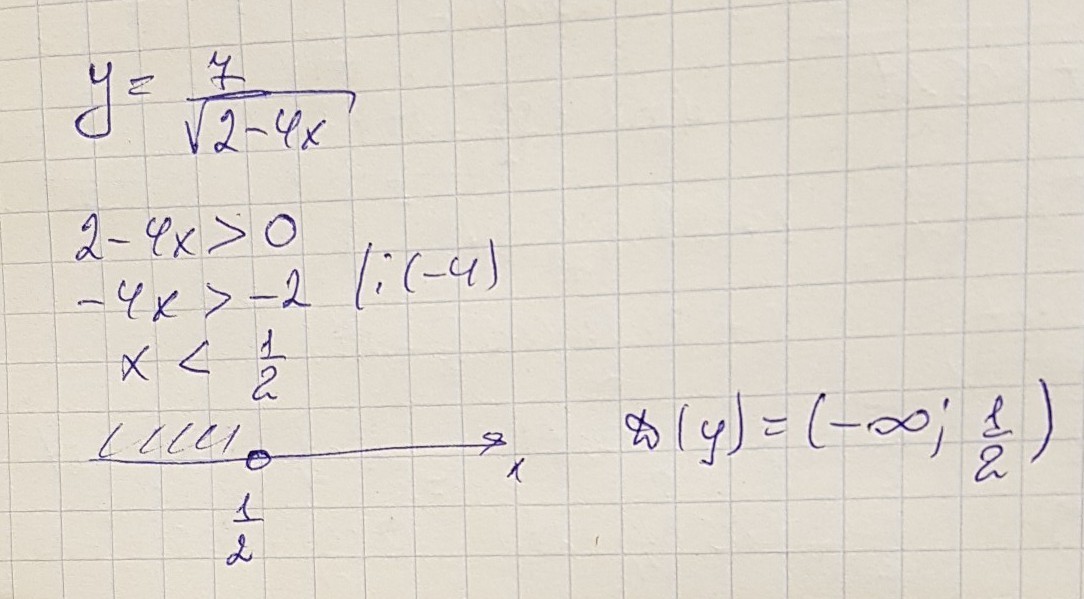 y = 7/√(2-4x)
2-4x > 0
-4x > -2 |:(-4)
x < 1/2
x
1/2
D(y) = (-∞; 1/2)